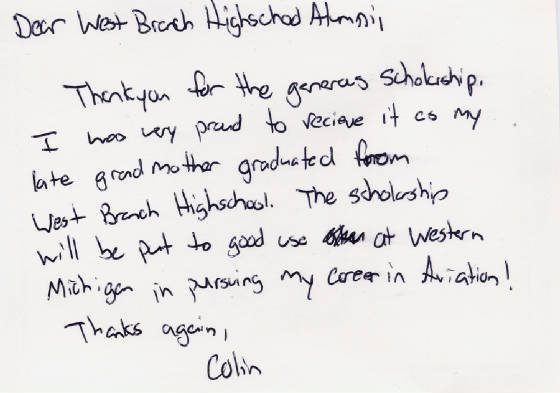 Dear West Branch Highschool Alumni,
Thankyou for the generous Scholarship.
I was very proud to recieve it as my
late grad mother graduated from
West Branch Highschool. The scholarship
will be put to good use at Western
Michigan in pursuing my career in Aviation!
Thanks again,
Colin